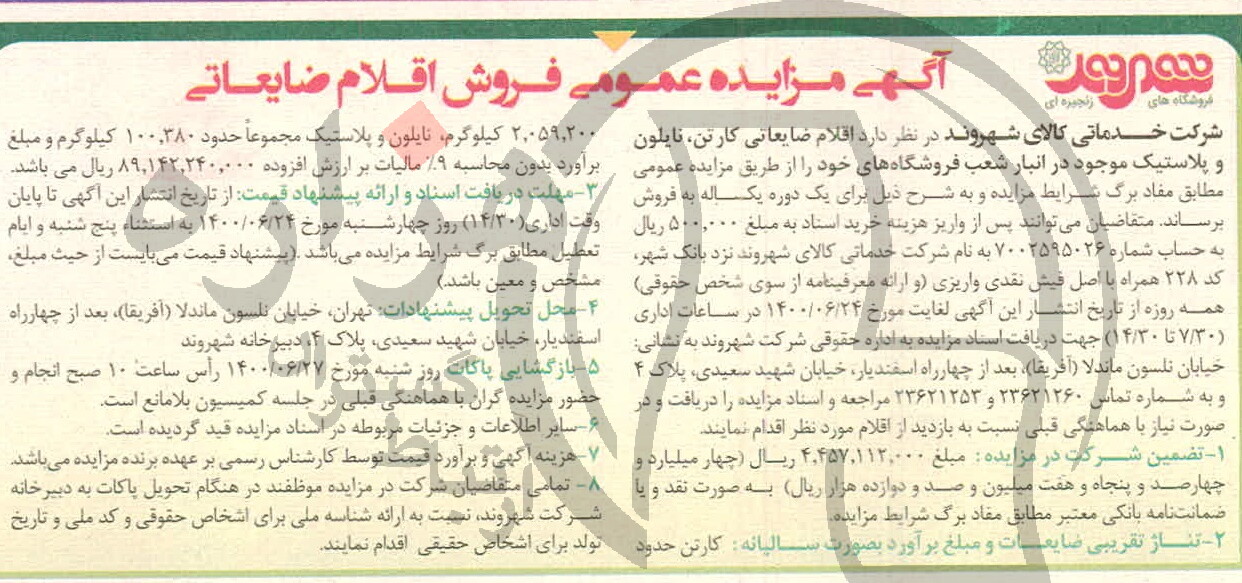 آگهی مزایده عمومی فروش اقلام ضایعاتی
شهروند
فروشگاه های زنجیره ای
شرکت خدماتی کالای شهروند در نظر دارد اقلام ضایعاتی کارتن، نایلون
و پلاستیک موجود در انبار شعب فروشگاه‌های خود را از طریق مزایده عمومی
مطابق مفاد برگ شرایط مزایده و به شرح ذیل برای یک دوره یکساله به فروش
برساند. متقاضیان می‌توانند پس از واریز هزینه خرید اسناد به مبلغ ۵۰۰,۰۰۰ ریال
به حساب شماره ۷۰۰۲۵۹۵۰۲۶ به نام شرکت خدماتی کالای شهروند نزد بانک شهر،
کد ۲۲۸ همراه با اصل فیش نقدی واریزی (و ارائه معرفینامه از سوی شخص حقوقی)
همه روزه از تاریخ انتشار این آگهی لغایت مورخ ۱۴۰۰/۰۶/۲۴ در ساعات اداری
(۷/۳۰ تا ۱۴/۳۰) جهت دریافت اسناد مزایده به اداره حقوقی شرکت شهروند به نشانی:
خیابان نلسون ماندلا (آفریقا)، بعد از چهارراه اسفندیار، خیابان شهید سعیدی، پلاک ۴
و به شماره تماس ۲۳۶۲۱۲۶۰ و ۲۳۶۲۱۲۵۳ مراجعه و اسناد مزایده را دریافت و در
صورت نیاز با هماهنگی قبلی نسبت به بازدید از اقلام مورد نظر اقدام نمایند.
۱-تضمین شرکت در مزایده: مبلغ ۴,۴۵۷,۱۱۲,۰۰۰ ریال (چهار میلیارد و
چهارصد و پنجاه و هفت میلیون و صد و دوازده هزار ریال) به صورت نقد و یا
ضمانت‌نامه بانکی معتبر مطابق مفاد برگ شرایط مزایده.
۲-تناژ تقریبی ضایعات و مبلغ برآورد بصورت سالیانه: کارتن حدود
۲,۰۵۹,۲۰۰ کیلوگرم، نایلون و پلاستیک مجموعاً حدود ۱۰۰,۳۸۰ کیلوگرم و مبلغ
برآورد بدون محاسبه ۹٪ مالیات بر ارزش افزوده ۸۹,۱۴۲,۲۴۰,۰۰۰ ریال می باشد.
۳-مهلت دریافت اسناد و ارائه پیشنهاد قیمت: از تاریخ انتشار این آگهی تا پایان
وقت اداری(۱۴/۳۰) روز چهارشنبه مورخ ۱۴۰۰/۰۶/۲۴ به استثناء پنج شنبه و ایام
تعطیل مطابق برگ شرایط مزایده می‌باشد .(پیشنهاد قیمت می‌بایست از حیث مبلغ،
مشخص و معین باشد.)
۴-محل تحویل پیشنهادات: تهران، خیابان نلسون ماندلا (آفریقا)، بعد از چهارراه
اسفندیار، خیابان شهید سعیدی، پلاک ۴، دبیرخانه شهروند
۵-بازگشایی پاکات روز شنبه مورخ ۱۴۰۰/۰۶/۲۷ رأس ساعت ۱۰ صبح انجام و
حضور مزایده گران با هماهنگی قبلی در جلسه کمیسیون بلامانع است.
۶-سایر اطلاعات و جزئیات مربوطه در اسناد مزایده قید گردیده است.
۷-هزینه آگهی و برآورد قیمت توسط کارشناس رسمی بر عهده برنده مزایده می‌باشد.
۸- تمامی متقاضیان شرکت در مزایده موظفند در هنگام تحویل پاکات به دبیرخانه
شرکت شهروند، نسبت به ارائه شناسه ملی برای اشخاص حقوقی و کد ملی و تاریخ
تولد برای اشخاص حقیقی اقدام نمایند.